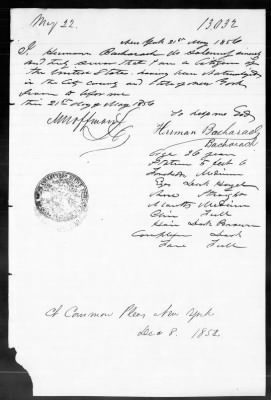 May 22. 13032
New York 21st May 1856
I Herman Bacharach do solemnly swear
and truly swear that I am a Citizen of
the United States. having been Naturalized
in the City County and
sworn to before me
this 21st day of May 1856
So help me God
Herman Bacharach
Bacharach
Age 26 years
Stature 5 feet 6
Forehead Medium
Eyes Dark Hazel
Nose Straight
Mouth Medium
Chin Full
Hair Dark Brown
Complexn Dark
Face Full
Common Pleas New York
Dec 8. 1852